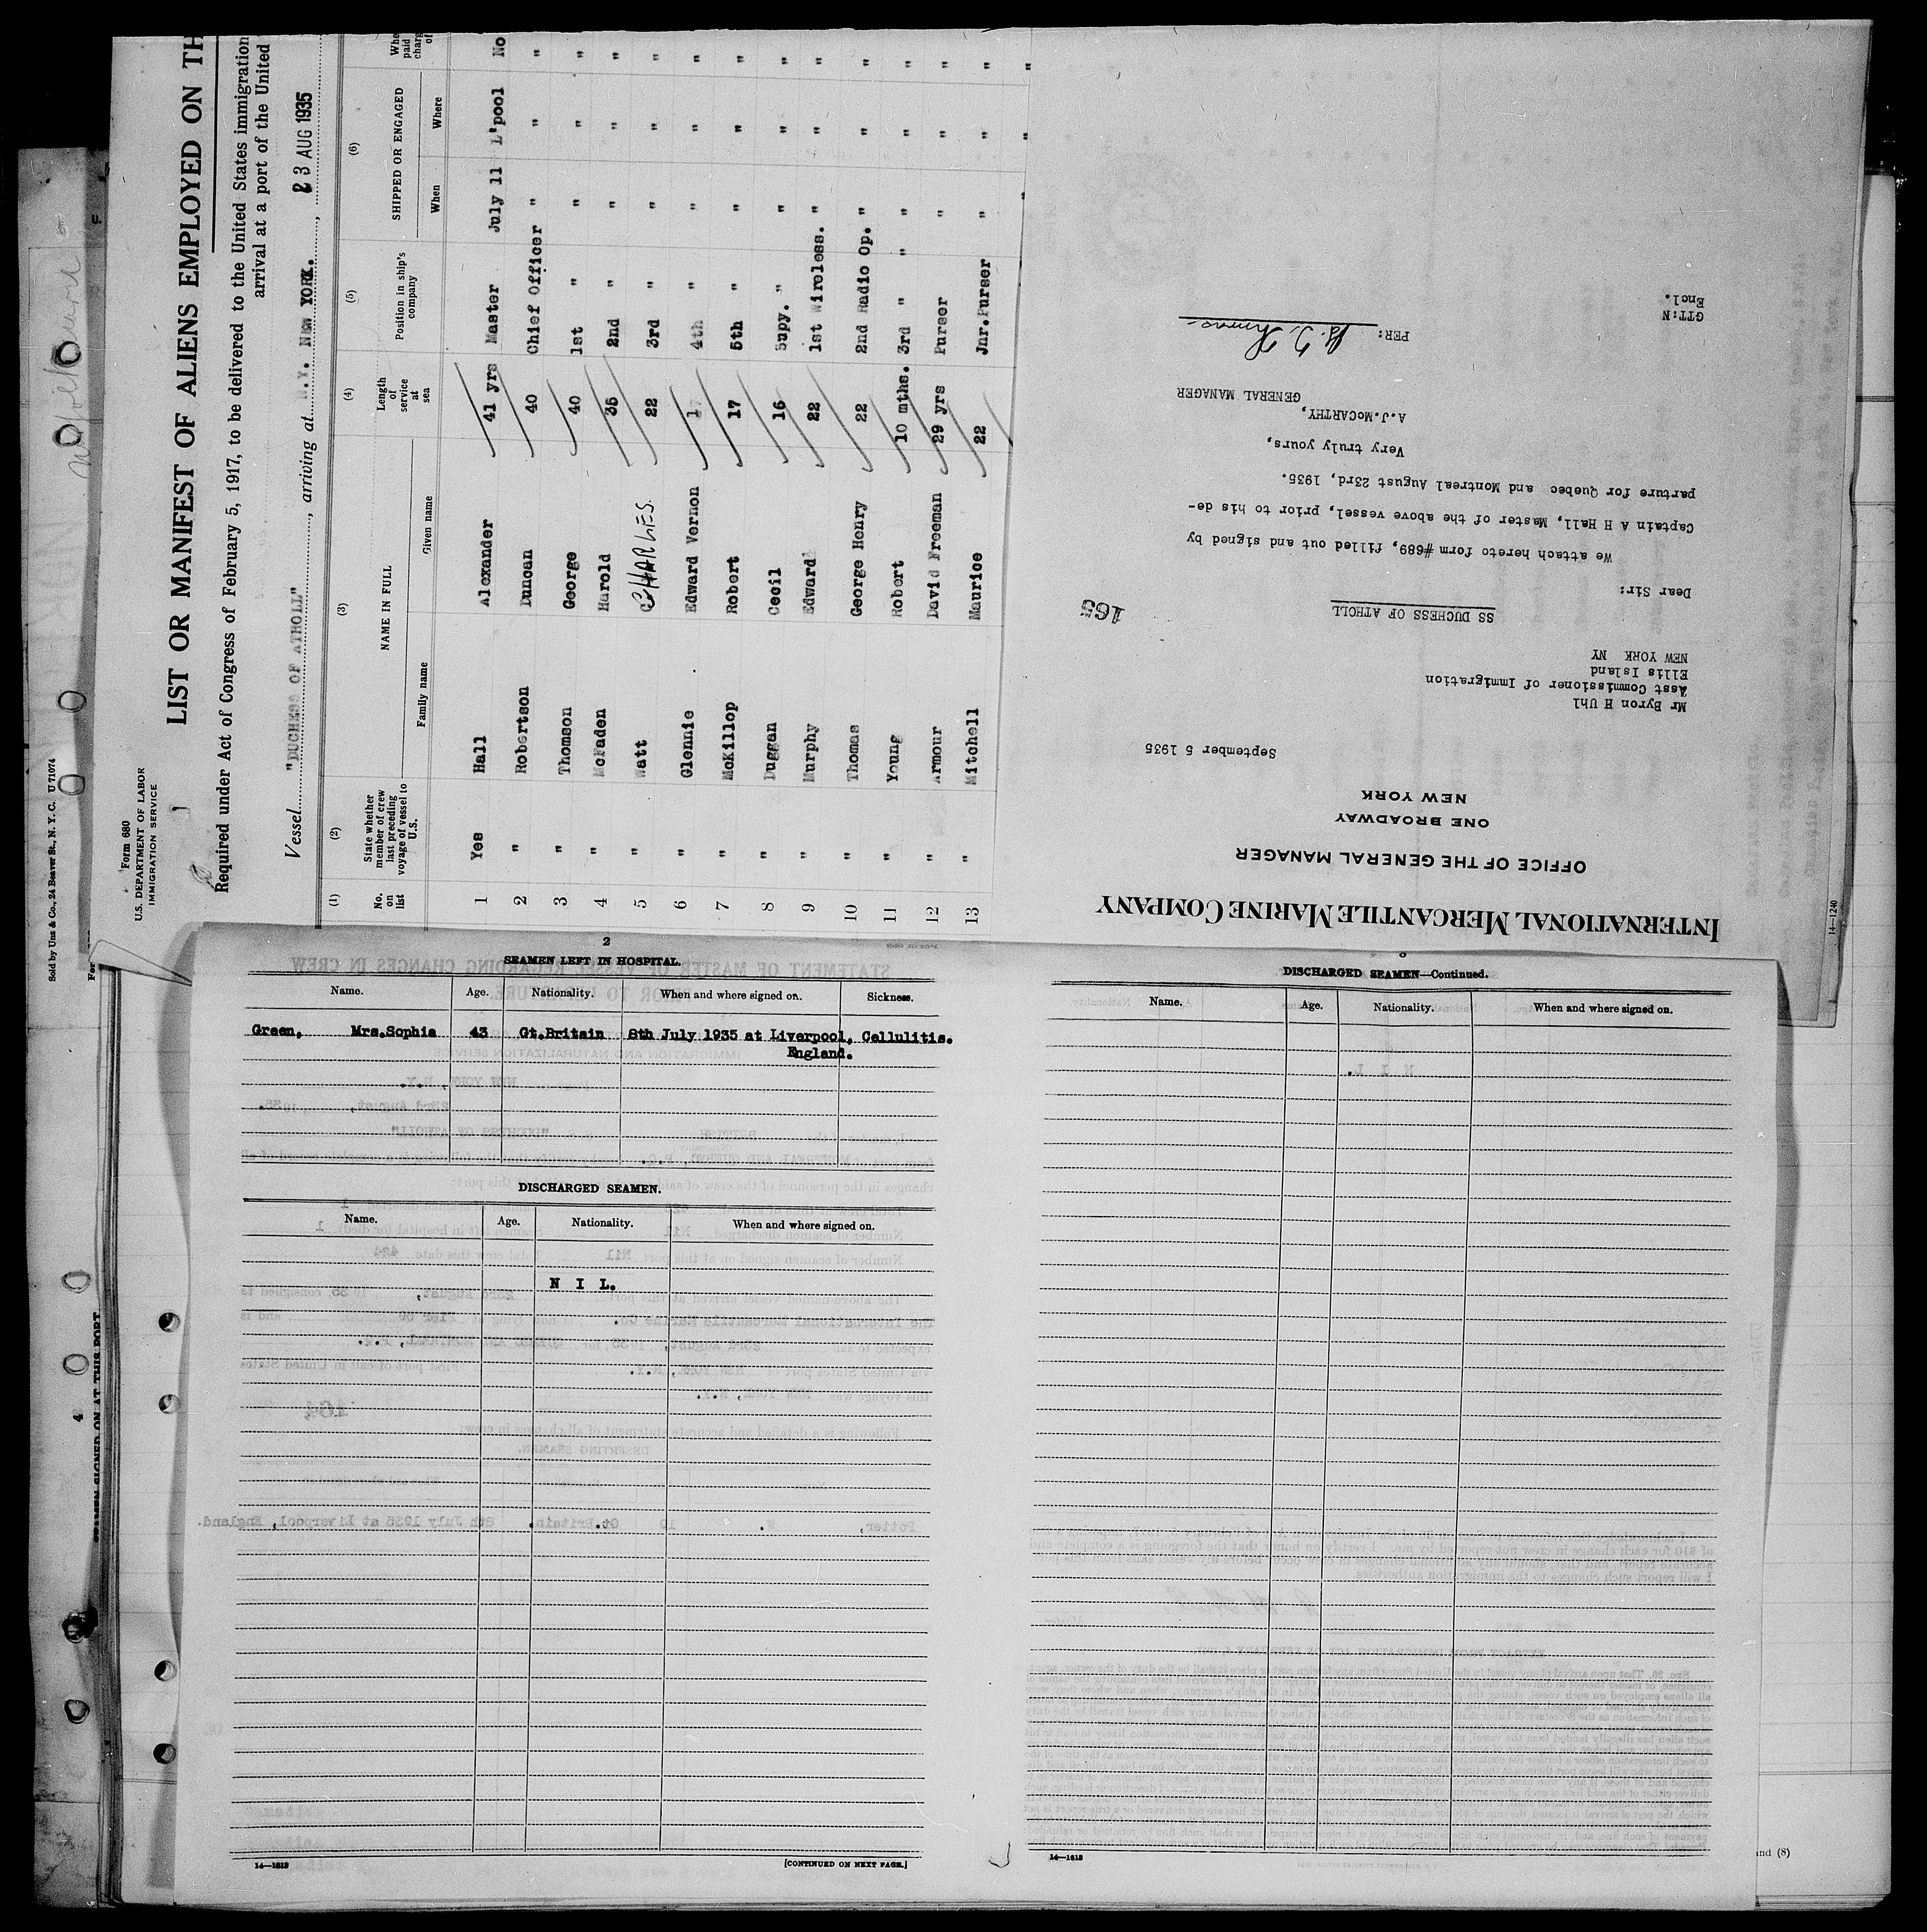 Form 680
U.S. DEPARTMENT OF LABOR
IMMIGRATION SERVICE
LIST OR MANIFEST OF ALIENS EMPLOYED ON TH
Required under Act of Congress of February 5, 1917, to be delivered to the United States immigration
arrival at a port of the United
Vessel "DUCHESS OF ATHOLL", arriving at N.Y. NEW YORK., 23 AUG 1935
(1) (2) (3) (4) (5) (6)
No. on list
State whether member of crew last preceding voyage of vessel to U.S.
NAME IN FULL
Family name Given name
Length of service at sea
Position in ship's company
SHIPPED OR ENGAGED
When Where
1 Yes Hall Alexander 41 yrs Master July 11 L'pool No
2 " Robertson Duncan 40 Chief Officer " " "
3 " Thomson George 40 1st " " " "
4 " McFaden Harold 35 2nd " " " "
5 " Watt CHARLES. 22 3rd " " " "
6 " Glennie Edward Vernon 4th " " " "
7 " McKillop Robert 17 5th " " " "
8 " Duggan Cecil 16 Supy. " " " "
9 " Murphy Edward 22 1st Wireless. " " "
10 " Thomas George Henry 22 2nd Radio Op. " " "
11 " Young Robert 10 mths. 3rd " " " " "
12 " Armour David Freeman 29 yrs Purser " " "
13 " Mitchell Maurice 22 Jnr.Purser " " "
Sold by Unz & Co., 24 Beaver St., N. Y. C. U 71074
INTERNATIONAL MERCANTILE MARINE COMPANY
OFFICE OF THE GENERAL MANAGER
ONE BROADWAY
NEW YORK
September 5 1935
Mr Byron H Uhl
Asst Commissioner of Immigration
Ellis Island
NEW YORK NY
SS DUCHESS OF ATHOLL
165
Dear Sir:
We attach hereto form #689, filled out and signed by
Captain A H Hall, Master of the above vessel, prior to his de-
parture for Quebec and Montreal August 23rd, 1935.
Very truly yours,
A.J.McCARTHY,
GENERAL MANAGER
PER:
GTT:N
Encl.
14—1240
2
SEAMEN LEFT IN HOSPITAL.
Name. Age. Nationality. When and where signed on. Sickness.
Green, Mrs.Sophia 43 Gt.Britain 8th July 1935 at Liverpool, Cellulitis.
England.
DISCHARGED SEAMEN.
Name. Age. Nationality. When and where signed on.
N I L.
14—1618
[CONTINUED ON NEXT PAGE.]
DISCHARGED SEAMEN—Continued.
Name. Age. Nationality. When and where signed on.
14—1618
4
SEAMEN SIGNED ON AT THIS PORT
and (8)